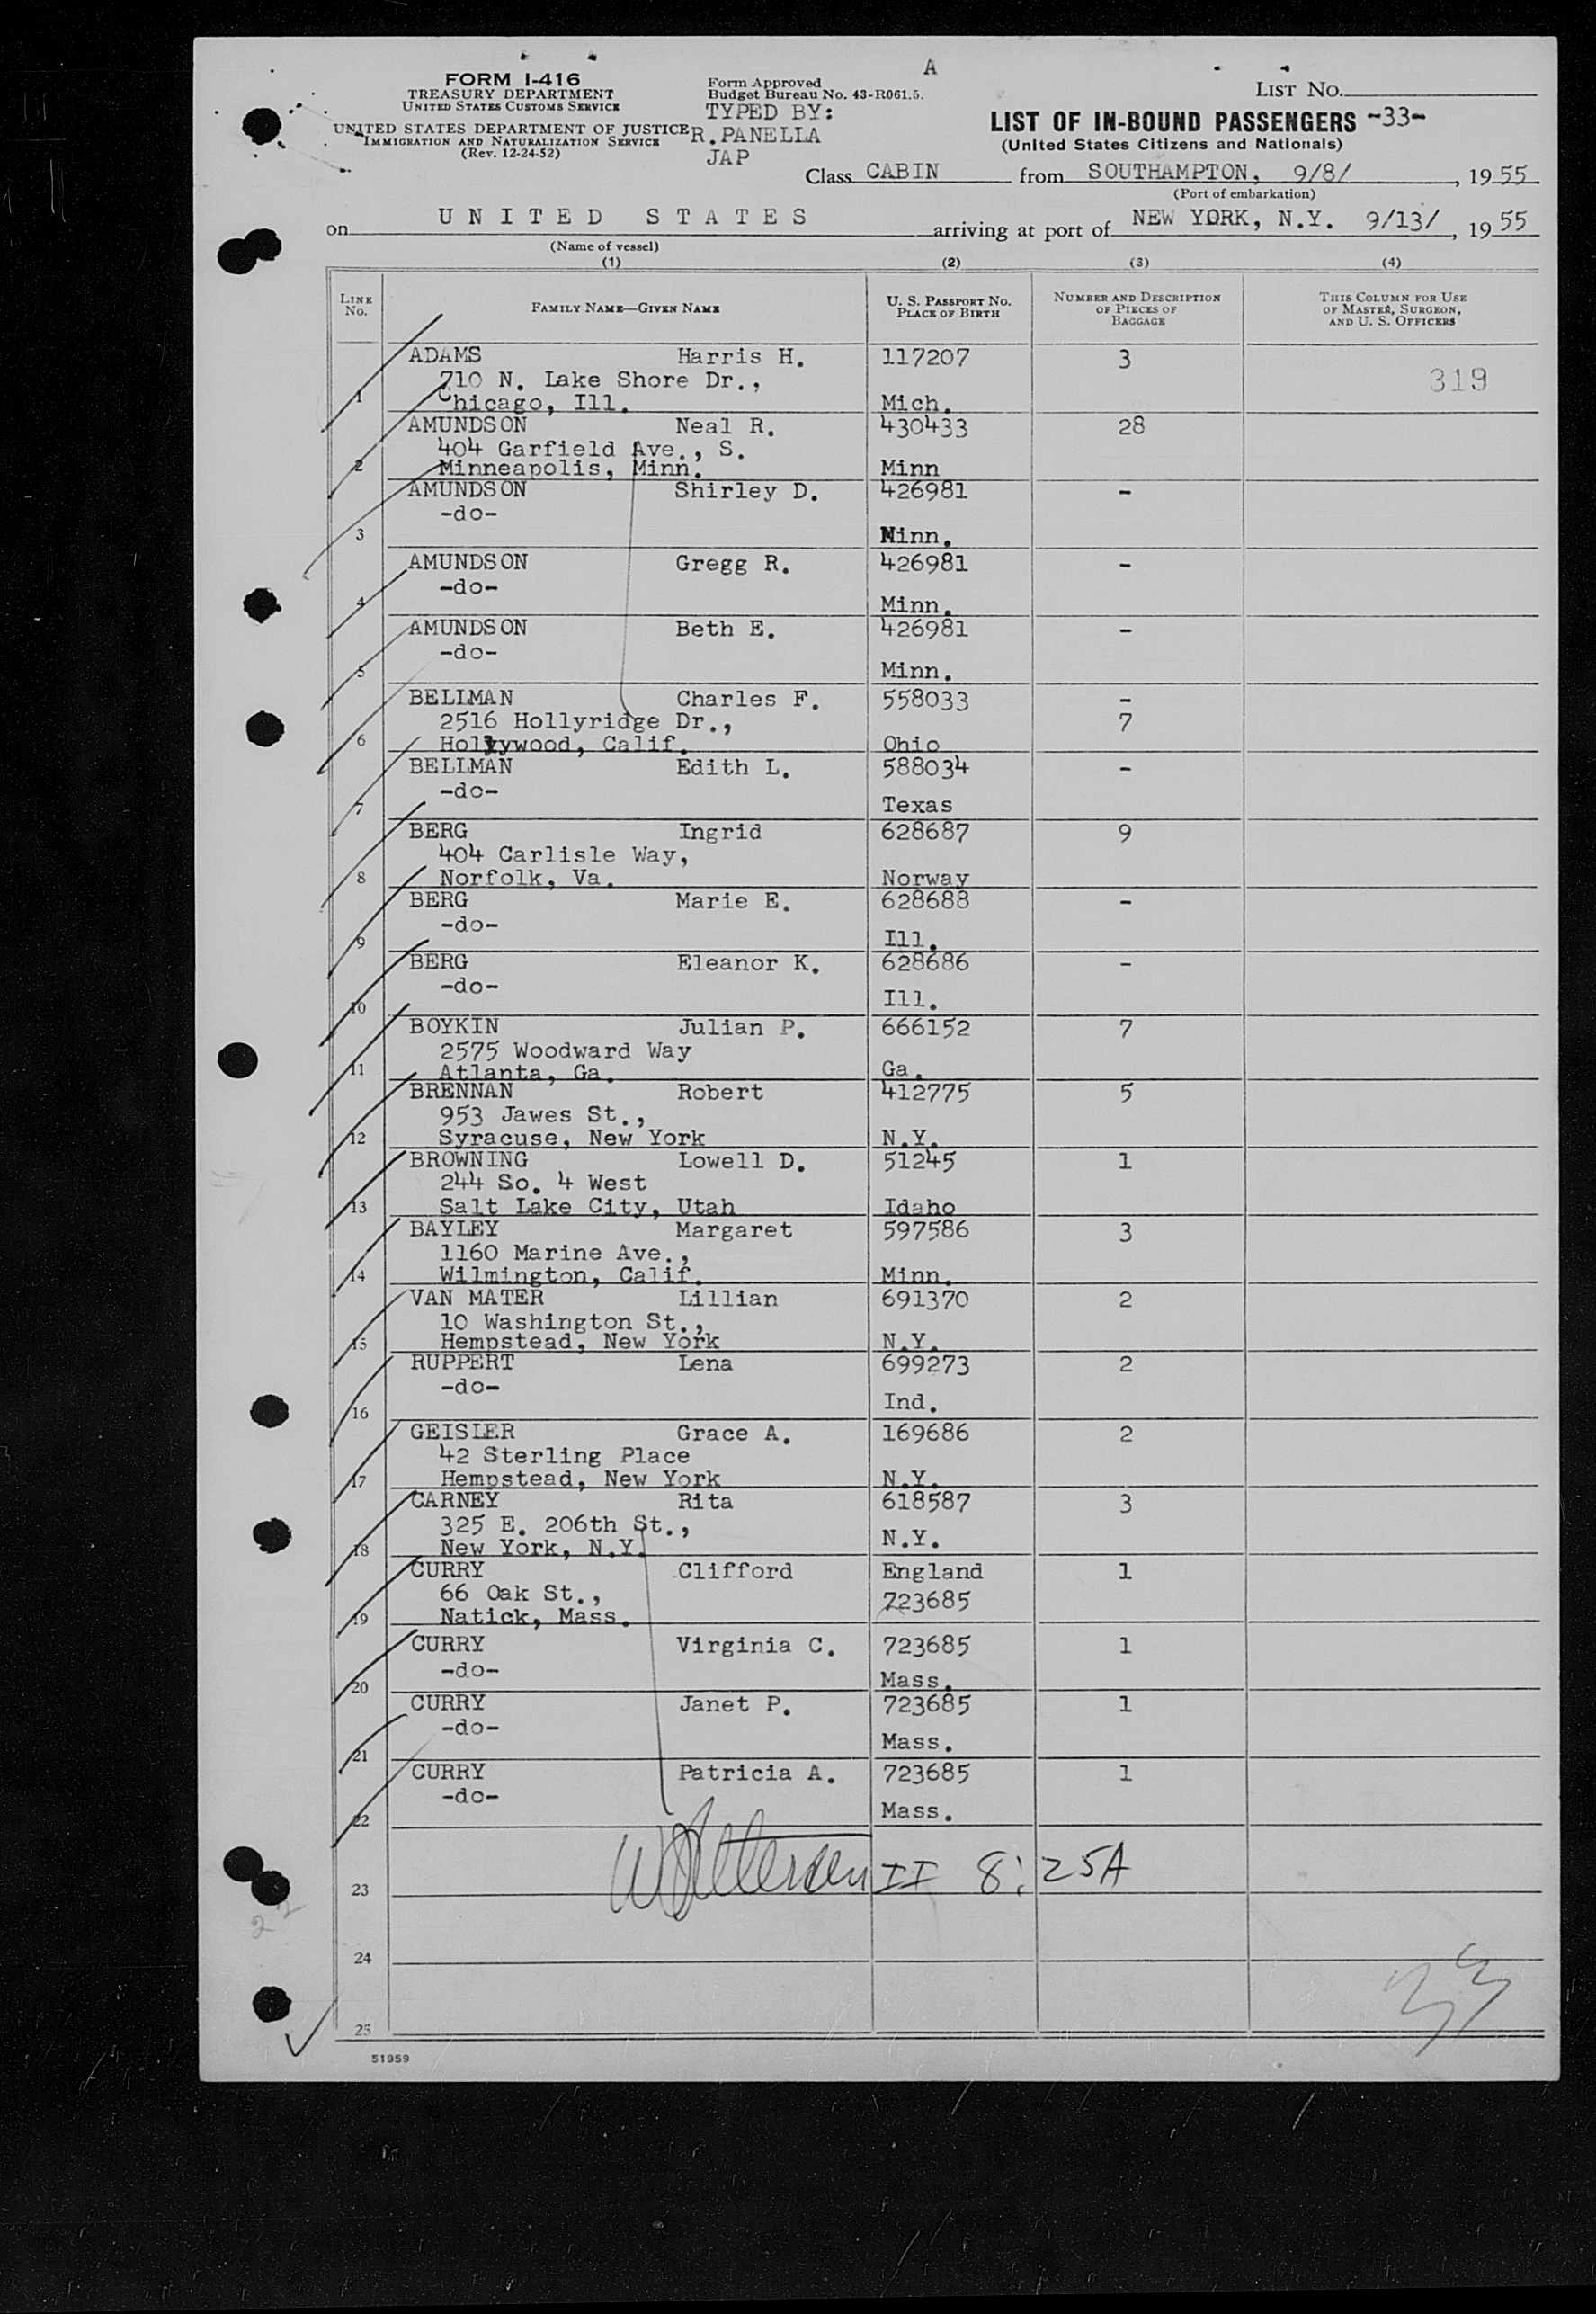 A
FORM I-416
TREASURY DEPARTMENT
UNITED STATES CUSTOMS SERVICE
UNITED STATES DEPARTMENT OF JUSTICE
IMMIGRATION AND NATURALIZATION SERVICE
(Rev. 12-24-52)
Form Approved
Budget Bureau No. 43-R061.5.
TYPED BY:
R.PANELLA
JAP
LIST No.
LIST OF IN-BOUND PASSENGERS -33-
(United States Citizens and Nationals)
Class CABIN from SOUTHAMPTON, 9/8/, 1955
(Port of embarkation)
on UNITED STATES arriving at port of NEW YORK, N.Y. 9/13/, 1955
(Name of vessel)
(1) (2) (3) (4)
LINE No. FAMILY NAME—GIVEN NAME U. S. PASSPORT No. PLACE OF BIRTH NUMBER AND DESCRIPTION OF PIECES OF BAGGAGE THIS COLUMN FOR USE OF MASTER, SURGEON, AND U. S. OFFICERS
ADAMS Harris H. 117207 3
710 N. Lake Shore Dr., 319
1 Chicago, Ill. Mich.
AMUNDSON Neal R. 430433 28
404 Garfield Ave., S.
2 Minneapolis, Minn. Minn
AMUNDSON Shirley D. 426981 -
-do-
3 Minn.
AMUNDSON Gregg R. 426981 -
-do-
4 Minn.
AMUNDSON Beth E. 426981 -
-do-
5 Minn.
BELLMAN Charles F. 558033 -
2516 Hollyridge Dr., 7
6 Hollywood, Calif. Ohio
BELLMAN Edith L. 588034 -
-do-
7 Texas
BERG Ingrid 628687 9
404 Carlisle Way,
8 Norfolk, Va. Norway
BERG Marie E. 628688 -
-do-
9 Ill.
BERG Eleanor K. 628686 -
-do-
10 Ill.
BOYKIN Julian P. 666152 7
2575 Woodward Way
11 Atlanta, Ga. Ga.
BRENNAN Robert 412775 5
953 Jawes St.,
12 Syracuse, New York N.Y.
BROWNING Lowell D. 51245 1
244 So. 4 West
13 Salt Lake City, Utah Idaho
BAYLEY Margaret 597586 3
1160 Marine Ave.,
14 Wilmington, Calif. Minn.
VAN MATER Lillian 691370 2
10 Washington St.,
15 Hempstead, New York N.Y.
RUPPERT Lena 699273 2
-do-
16 Ind.
GEISLER Grace A. 169686 2
42 Sterling Place
17 Hempstead, New York N.Y.
CARNEY Rita 618587 3
325 E. 206th St.,
18 New York, N.Y. N.Y.
CURRY Clifford England 1
66 Oak St., 723685
19 Natick, Mass.
CURRY Virginia C. 723685 1
-do-
20 Mass.
CURRY Janet P. 723685 1
-do-
21 Mass.
CURRY Patricia A. 723685 1
-do-
22 Mass.
II 8:25A
23
22
24
33
25
51959